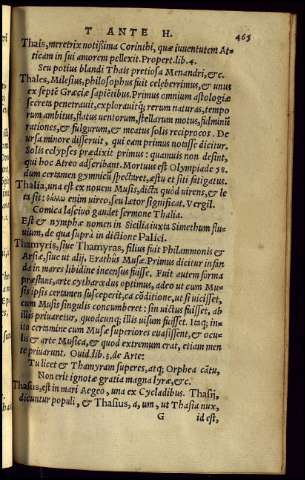 T ANTE H. 465
Thais, meretrix notißima Corinthi, quæ iuuentutem At-
ticam in sui amorem pellexit. Propert. lib. 4.
Seu potius blandi Thais pretiosa Menandri, &c.
Thales, Milesius, philosophus fuit celeberrimus, & unus
ex septē Græciæ sapiētibus. Primus omnium astrologiæ
secreta penetrauit, explorauitq; rerum naturas, tempo
rum ambitus, flatus uentorum, stellarum motus, tonitruū
rationes, & fulgurum, & meatus solis reciprocos. De
ursa minore disseruit, qui eam primus nouisse dicitur.
Solis eclypses prædixit primus: quanuis non desint,
qui hoc Atreo adscribant. Mortuus est Olympiade 58.
dum certamen gymnicū spectaret, æstu et siti fatigatus.
Thalia, una est ex nouem Musis, dicta quòd uirens, & le
ta sit: enim uireo, seu lætor significat. Vergil.
Comica lasciuo gaudet sermone Thalia.
Est & nymphæ nomen in Sicilia iuxta Simethum flu-
uium, de qua suprà in dictione Palici.
Thamyris, siue Thamyras, filius fuit Philammonis &
Arsiæ, siue ut alij, Eratus Musæ. Primus dicitur infan
da in mares libidine incensus fuisse. Fuit autem forma
præstans, arte citharædus optimus, adeo ut cum Mu-
sis ipsis certamen susceperit, ea cōditione, ut si uicisset,
cum Musis singulis concumberet: sin uictus fuisset, ab
illis priuaretur, quodcunq; illis uisum fuisset. Itaq; in-
ito certamine cum Musæ superiores euasissent, & ocu-
lis & arte Musica, & quod extremum erat, etiam men
te priuarunt. Ouid. lib. 3. de Arte:
Tu licet & Thamyram superes, atq; Orphea cātu,
Non erit ignotæ gratia magna lyræ, &c.
Thasus, est in mari Aegeo, una ex Cycladibus. Thasij,
dicuntur populi, & Thasius, a, um, ut Thasia nux,
G id est,